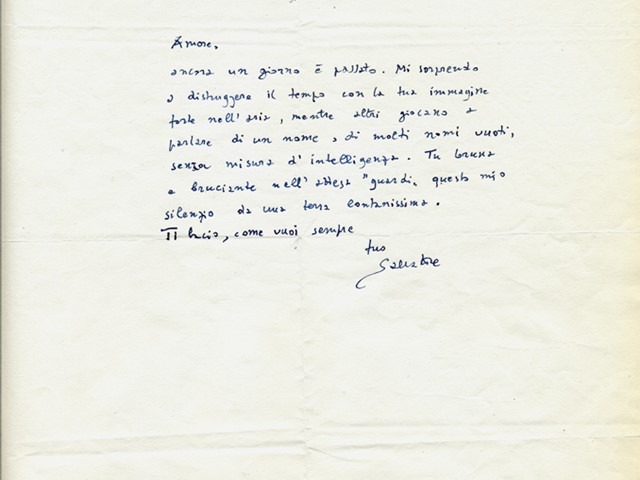 Amore,
ancora un giorno è passato. Mi sorprendo
a distruggere il tempo con la tua immagine
forte nell'aria, mentre altri giocano a
parlare di un nome, di molti nomi vuoti,
senza misura d'intelligenza. Tu bruna
e bruciante nell'attesa "guardi" questo mio
silenzio da una terra lontanissima.
Ti bacio, come vuoi sempre
tuo
Salvatore